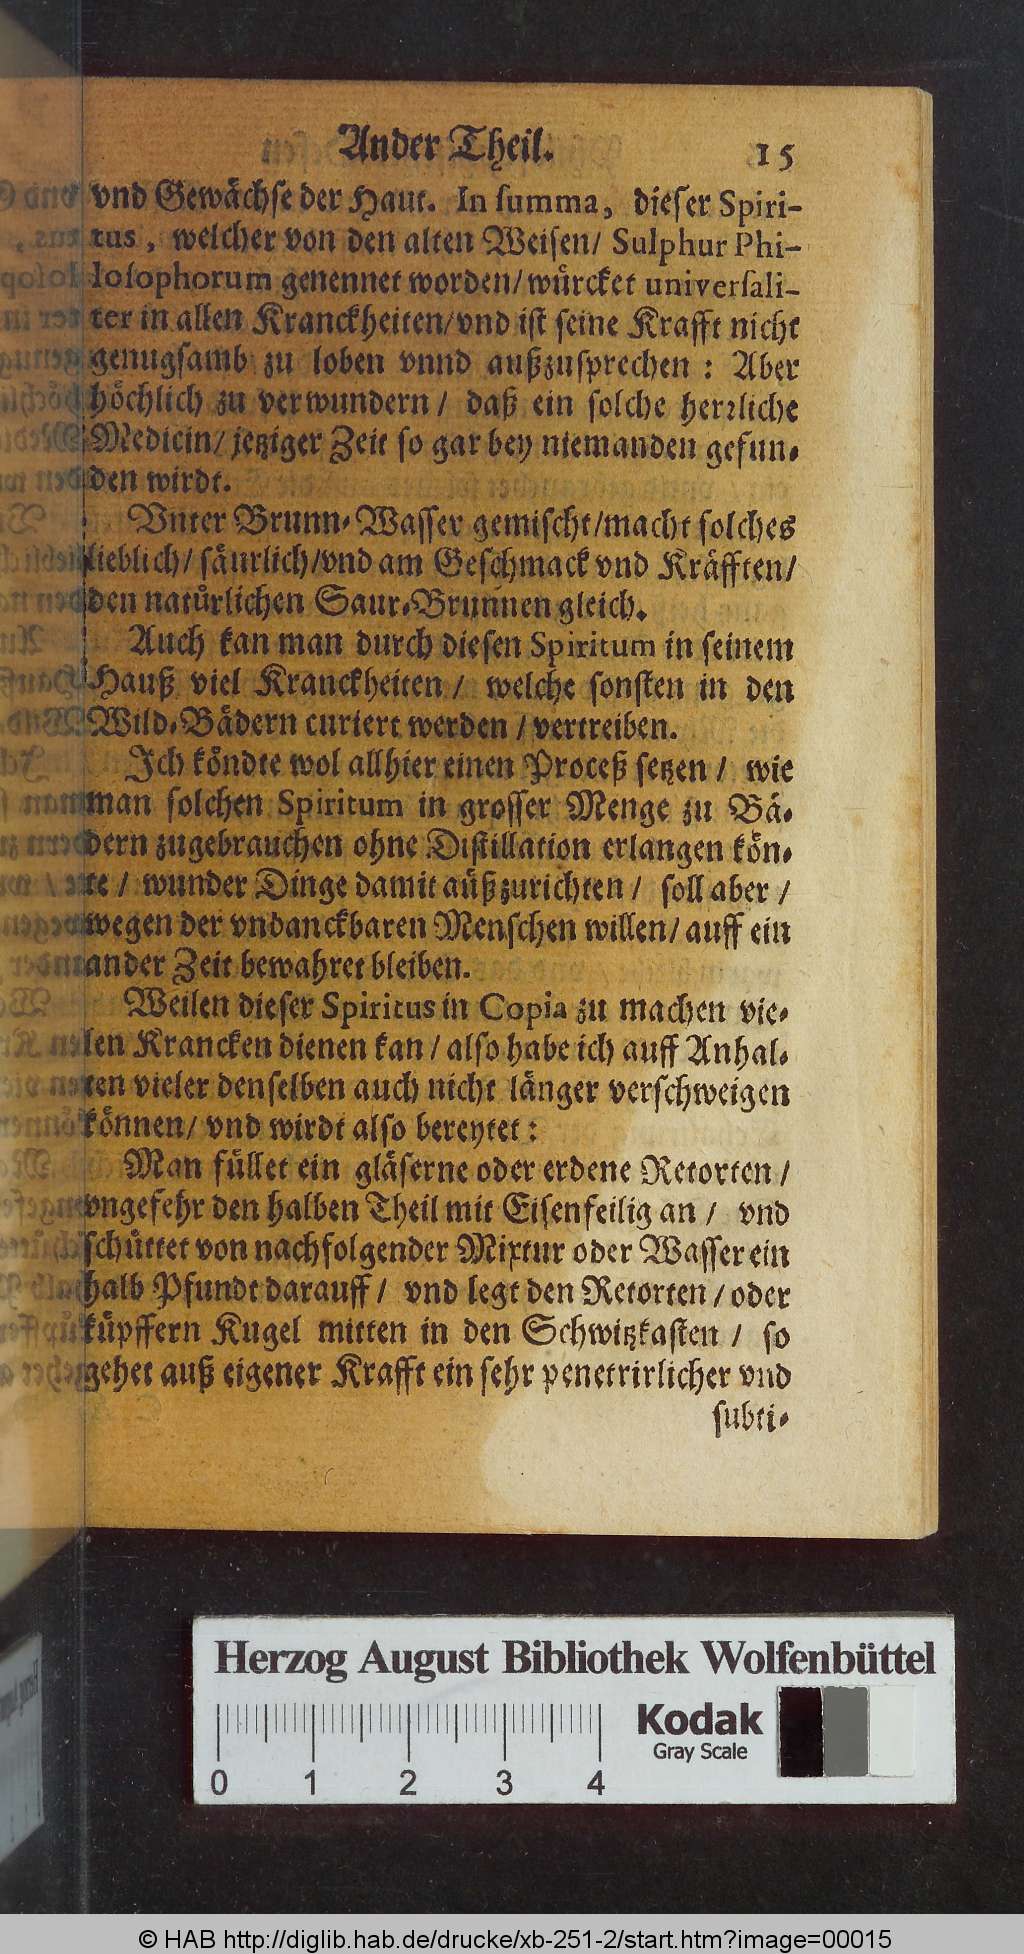 Ander Theil. 15
vnd Gewächse der Haut. In summa, dieser Spiri-
tus, welcher von den alten Weisen/ Sulphur Phi-
losophorum genennet worden/ würcket universali-
ter in allen Kranckheiten/ vnd ist seine Krafft nicht
genugsamb zu loben vnnd außzusprechen : Aber
höchlich zu verwundern/ daß ein solche herrliche
Medicin/ jetziger Zeit so gar bey niemanden gefun-
den wirdt.
Vnter Brunn-Wasser gemischt/ macht solches
lieblich/ säurlich/ vnd am Geschmack vnd Kräfften/
den natürlichen Saur-Brunnen gleich.
Auch kan man durch diesen Spiritum in seinem
Hauß viel Kranckheiten / welche sonsten in den
Wild-Bädern curiert werden / vertreiben.
Ich köndte wol allhier einen Proceß setzen / wie
man solchen Spiritum in grosser Menge zu Bä-
dern zugebrauchen ohne Distillation erlangen kön-
te / wunder Dinge damit außzurichten / soll aber /
wegen der vndanckbaren Menschen willen/ auff ein
ander Zeit bewahret bleiben.
Weilen dieser Spiritus in Copia zu machen vie-
len Krancken dienen kan / also habe ich auff Anhal-
ten vieler denselben auch nicht länger verschweigen
können/ vnd wirdt also bereytet :
Man füllet ein gläserne oder erdene Retorten /
vngefehr den halben Theil mit Eisenfeilig an / vnd
schüttet von nachfolgender Mixtur oder Wasser ein
halb Pfundt darauff / vnd legt den Retorten / oder
küpffern Kugel mitten in den Schwitzkasten / so
gehet auß eigener Krafft ein sehr penetrirlicher vnd
subti-
Herzog August Bibliothek Wolfenbüttel
Kodak
Gray Scale
0 1 2 3 4
© HAB http://diglib.hab.de/drucke/xb-251-2/start.htm?image=00015